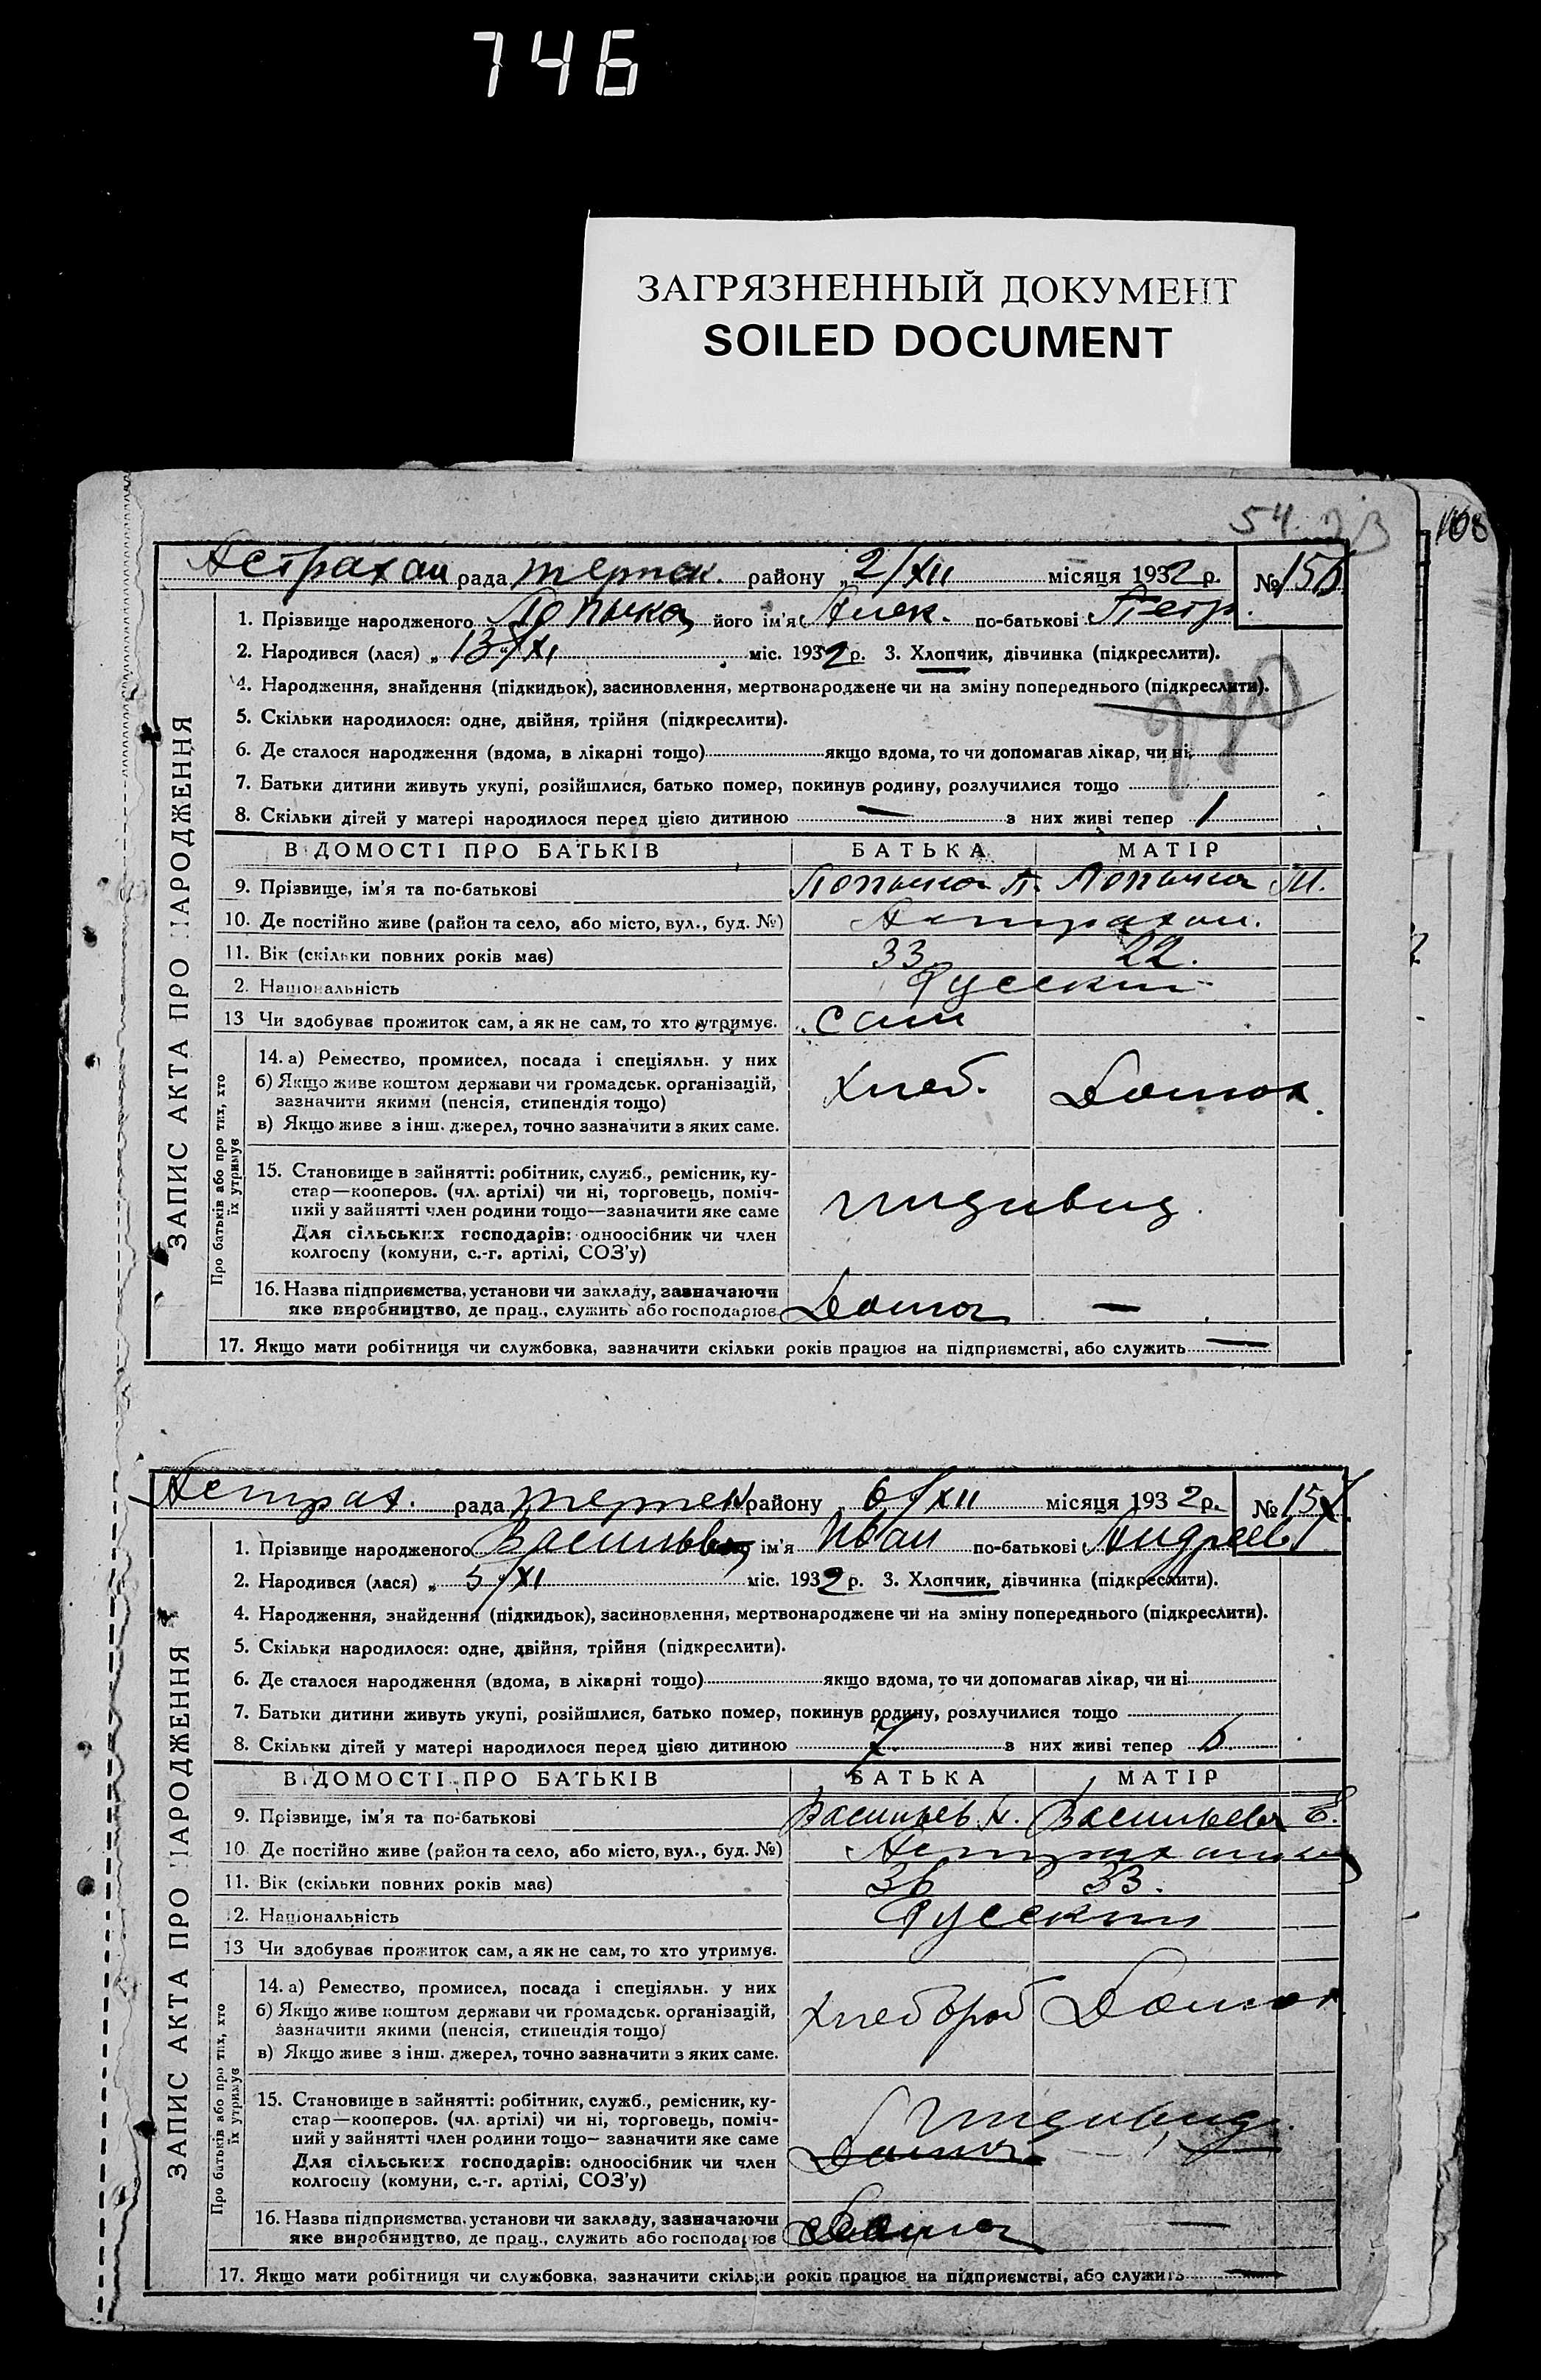 746
ЗАГРЯЗНЕННЫЙ ДОКУМЕНТ
SOILED DOCUMENT
54
108
Астрахан рада району „2/XII місяця 1932 р. № 156
ЗАПИС АКТА ПРО НАРОДЖЕННЯ
1. Прізвище народженого його ім'я Алек. по-батькові Петр.
2. Народився (лася) „ 13/XI міс. 1932 р. 3. Хлопчик, дівчинка (підкреслити).
4. Народження, знайдення (підкидьок), засиновлення, мертвонароджене чи на зміну попереднього (підкреслити).
5. Скільки народилося: одне, двійня, трійня (підкреслити).
6. Де сталося народження (вдома, в лікарні тощо) якщо вдома, то чи допомагав лікар, чи ні
7. Батьки дитини живуть укупі, розійшлися, батько помер, покинув родину, розлучилися тощо
8. Скільки дітей у матері народилося перед цією дитиною — з них живі тепер 1
ВІДОМОСТІ ПРО БАТЬКІВ БАТЬКА МАТІР
9. Прізвище, ім'я та по-батькові П. М.
10. Де постійно живе (район та село, або місто, вул., буд. №) Астрахан.
11. Вік (скільки повних років має) 33 22.
12. Національність Русский
13 Чи здобуває прожиток сам, а як не сам, то хто утримує. сам
Про батьків або про тих, хто їх утримує
14. а) Ремество, промисел, посада і спеціяльн. у них
б) Якщо живе коштом держави чи громадськ. організацій,
зазначити якими (пенсія, стипендія тощо)
в) Якщо живе з інш. джерел, точно зазначити з яких саме.
хлеб. Домох
15. Становище в зайнятті: робітник, служб., ремісник, ку-
стар—кооперов. (чл. артілі) чи ні, торговець, поміч-
ний у зайнятті член родини тощо—зазначити яке саме
Для сільських господарів: одноосібник чи член
колгоспу (комуни, с.-г. артілі, СОЗ'у)
индивид.
16. Назва підприємства, установи чи закладу, зазначаючи
яке виробництво, де прац., служить або господарює Дома —
17. Якщо мати робітниця чи службовка, зазначити скільки років працює на підприємстві, або служить —
Астрах. рада району „ 6/XII місяця 1932 р. № 157
ЗАПИС АКТА ПРО НАРОДЖЕННЯ
1. Прізвище народженого Васильев ім'я Иван по-батькові Андреев
2. Народився (лася) „ 5/XI міс. 1932 р. 3. Хлопчик, дівчинка (підкреслити).
4. Народження, знайдення (підкидьок), засиновлення, мертвонароджене чи на зміну попереднього (підкреслити).
5. Скільки народилося: одне, двійня, трійня (підкреслити).
6. Де сталося народження (вдома, в лікарні тощо) якщо вдома, то чи допомагав лікар, чи ні
7. Батьки дитини живуть укупі, розійшлися, батько помер, покинув родину, розлучилися тощо
8. Скільки дітей у матері народилося перед цією дитиною 7 з них живі тепер 6
ВІДОМОСТІ ПРО БАТЬКІВ БАТЬКА МАТІР
9. Прізвище, ім'я та по-батькові Васильев А. Васильева Е.
10. Де постійно живе (район та село, або місто, вул., буд. №)
11. Вік (скільки повних років має) 36 33.
12. Національність Русский
13 Чи здобуває прожиток сам, а як не сам, то хто утримує.
Про батьків або про тих, хто їх утримує
14. а) Ремество, промисел, посада і спеціяльн. у них
б) Якщо живе коштом держави чи громадськ. організацій,
зазначити якими (пенсія, стипендія тощо)
в) Якщо живе з інш. джерел, точно зазначити з яких саме.
Домох
15. Становище в зайнятті: робітник, служб., ремісник, ку-
стар—кооперов. (чл. артілі) чи ні, торговець, поміч-
ний у зайнятті член родини тощо— зазначити яке саме
Для сільських господарів: одноосібник чи член
колгоспу (комуни, с.-г. артілі, СОЗ'у)
Индивид.
Дома
16. Назва підприємства, установи чи закладу, зазначаючи
яке виробництво, де прац., служить або господарює Дома —
17. Якщо мати робітниця чи службовка, зазначити скільки років працює на підприємстві, або служить —